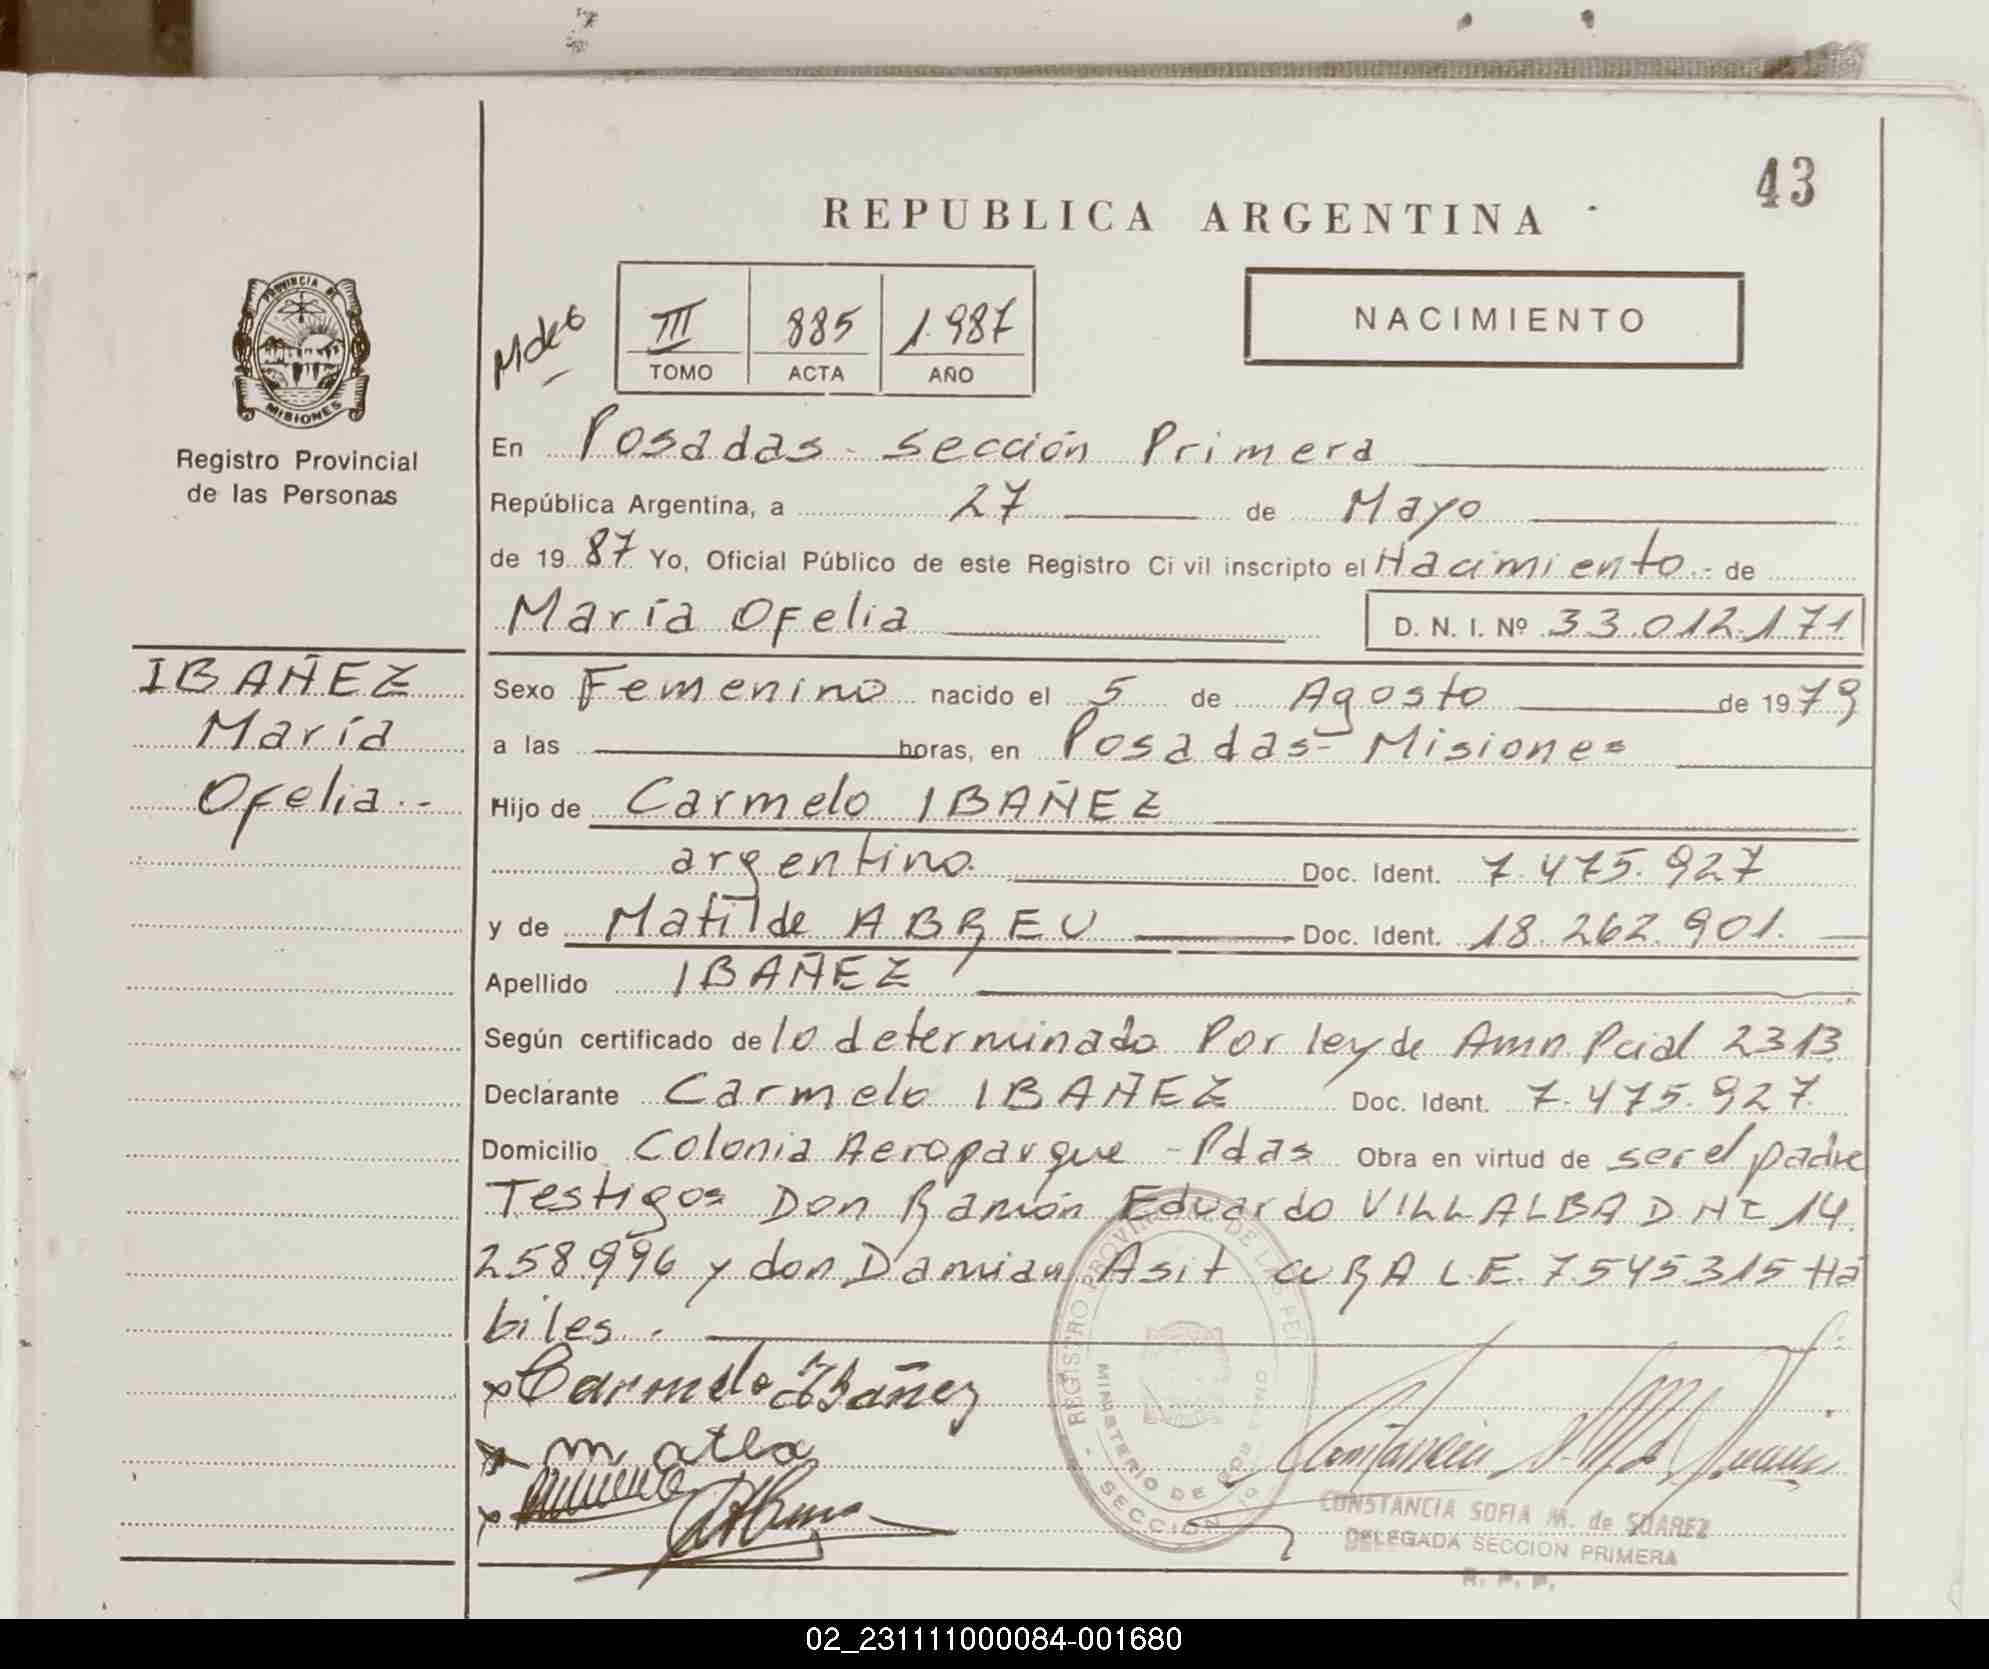 43
REPUBLICA ARGENTINA
PROVINCIA DE
MISIONES
Registro Provincial
de las Personas
III 885 1.987
TOMO ACTA AÑO
NACIMIENTO
En Posadas - sección Primera
República Argentina, a 27 de Mayo
de 19 87 Yo, Oficial Público de este Registro Civil inscripto el Nacimiento.- de
María Ofelia D. N. I. Nº 33.012.171
IBAÑEZ
María
Ofelia.-
Sexo Femenino nacido el 5 de Agosto de 1979
a las horas, en Posadas- Misiones
Hijo de Carmelo IBAÑEZ
argentino. Doc. Ident. 7.475.927
y de Matilde ABREU Doc. Ident. 18.262.901.
Apellido IBAÑEZ
Según certificado de lo determinado Por ley de Amn Pcial 2313
Declarante Carmelo IBAÑEZ Doc. Ident. 7.475.927.
Domicilio Colonia Aeroparque - Pdas Obra en virtud de ser el padre
Testigos Don Ramón Eduardo VILLALBA DNI 14.
258.996 y don Damian Asit CURA L.E. 7545315 Há
biles.
x Carmelo Ibañez
REGISTRO PROVINCIAL DE LAS PER
MINISTERIO DE GOBIERNO
SECCION
CONSTANCIA SOFIA M. de SUAREZ
DELEGADA SECCION PRIMERA
R. P. P.
02_231111000084-001680